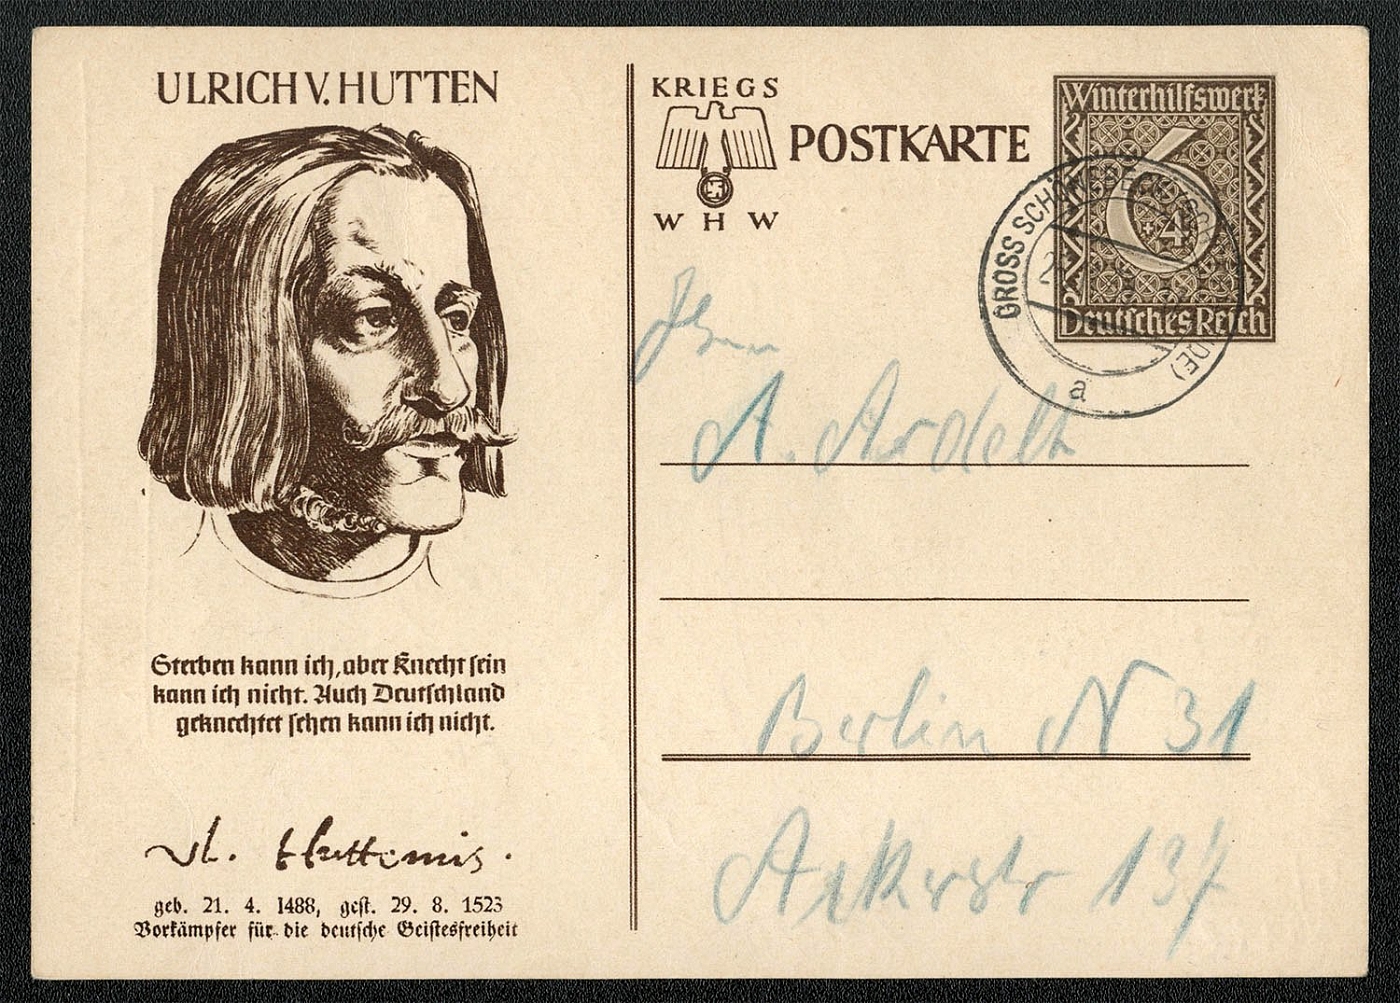 ULRICH V. HUTTEN
Sterben kann ich, aber Knecht sein
kann ich nicht. Auch Deutschland
geknechtet sehen kann ich nicht.
geb. 21. 4. 1488, gest. 29. 8. 1523
Vorkämpfer für die deutsche Geistesfreiheit
KRIEGS
WHW
POSTKARTE
Winterhilfswerk
6
+4
Deutsches Reich
GROSS SCHÖNEBECK
a
Herrn
A. Ardelt
Berlin N 31
Ackerstr 137